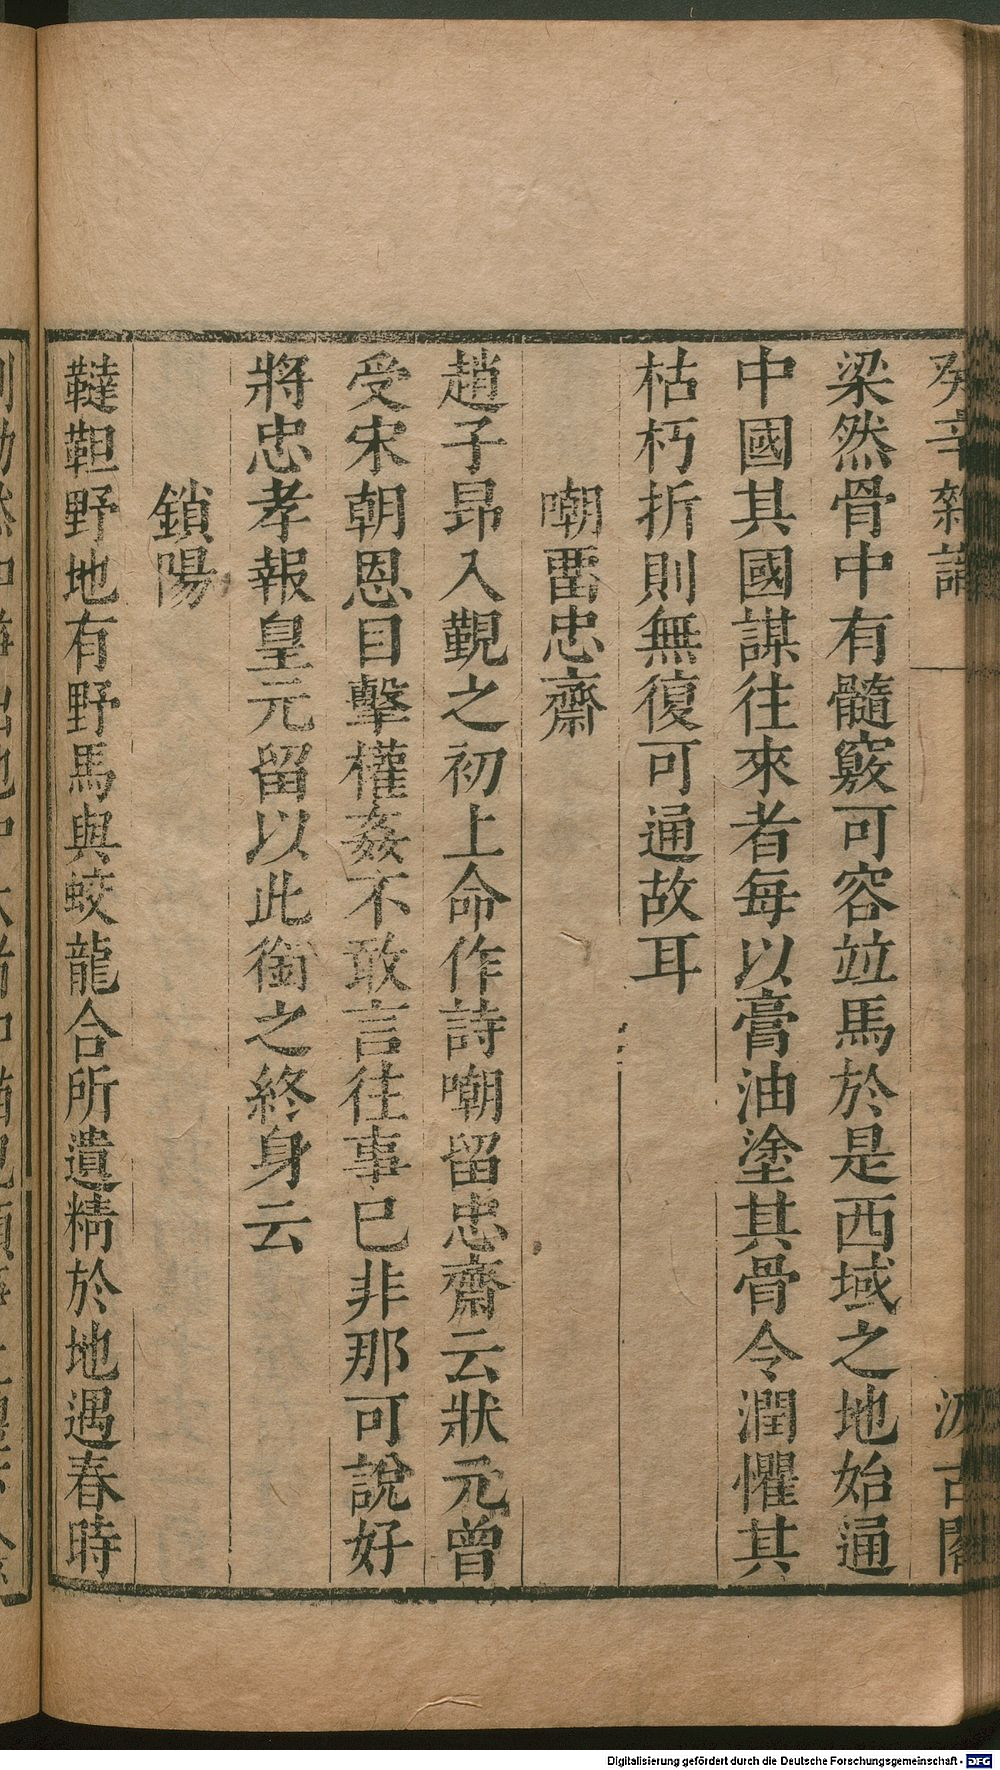 癸辛雜識 汲古閣
梁然骨中有髓竅可容竝馬於是西域之地始通
中國其國謀往來者每以膏油塗其骨令潤懼其
枯朽折則無復可通故耳
嘲畱忠齋
趙子昂入覲之初上命作詩嘲留忠齋云狀元曾
受宋朝恩目擊權姦不敢言往事已非那可說好
將忠孝報皇元留以此銜之終身云
鎖陽
韃靼野地有野馬與蛟龍合所遺精於地遇春時
Digitalisierung gefördert durch die Deutsche Forschungsgemeinschaft - DFG